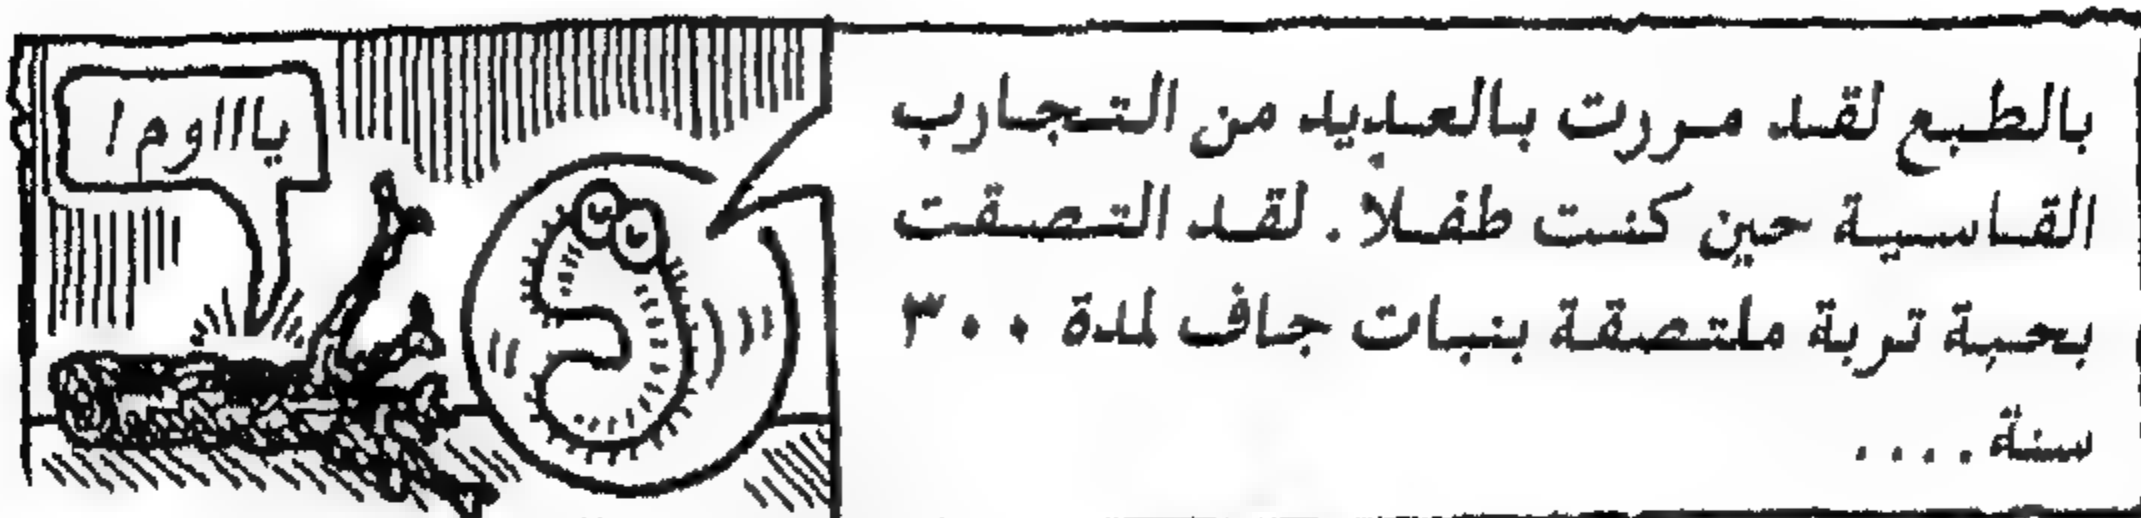 بالطبع لقد مررت بالعديد من التجارب
القاسية حين كنت طفلا. لقد التصقت
بحبة تربة ملتصقة بنبات جاف لمدة ٣٠٠
سنة....
يااااوم!